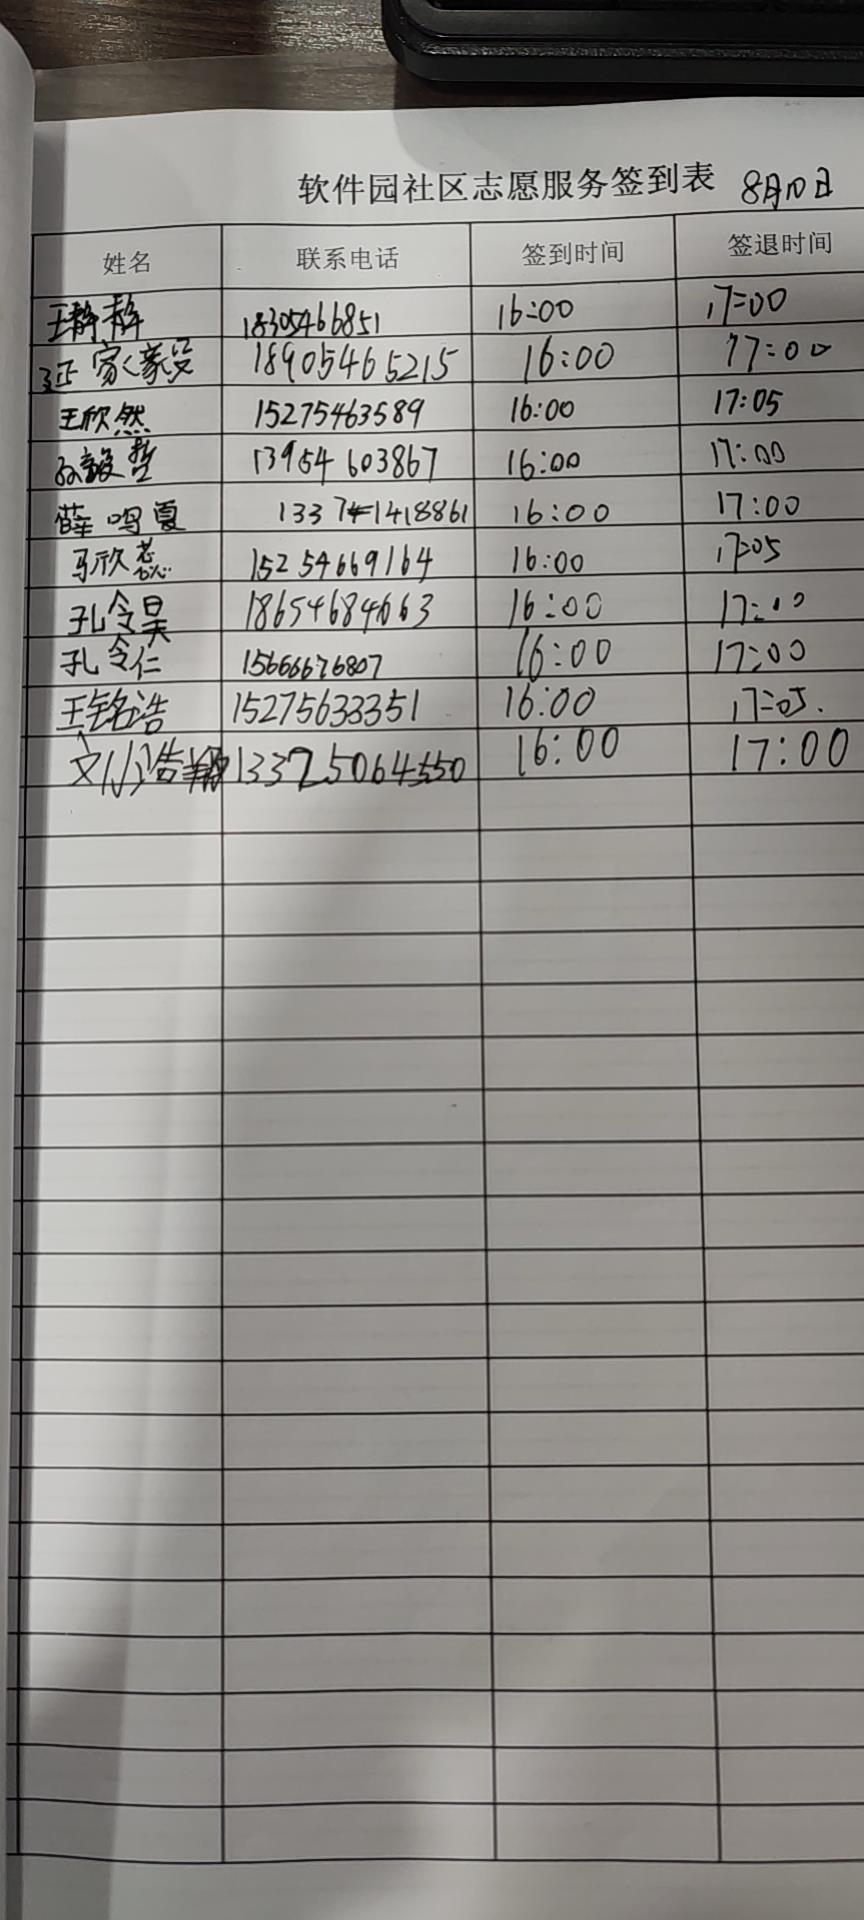 软件园社区志愿服务签到表 8月10日
姓名 联系电话 签到时间 签退时间
王静静 18305466851 16:00 17:00
家豪 18905465215 16:00 17:00
王欣然 15275463589 16:00 17:05
孙毅哲 13954603867 16:00 17:00
薛鸣夏 13371418861 16:00 17:00
马欣蕊 15254669164 16:00 17:05
孔令昊 18654684663 16:00 17:10
孔令仁 15666676807 16:00 17:00
王铭浩 15275633351 16:00 17:05.
16:00 17:00